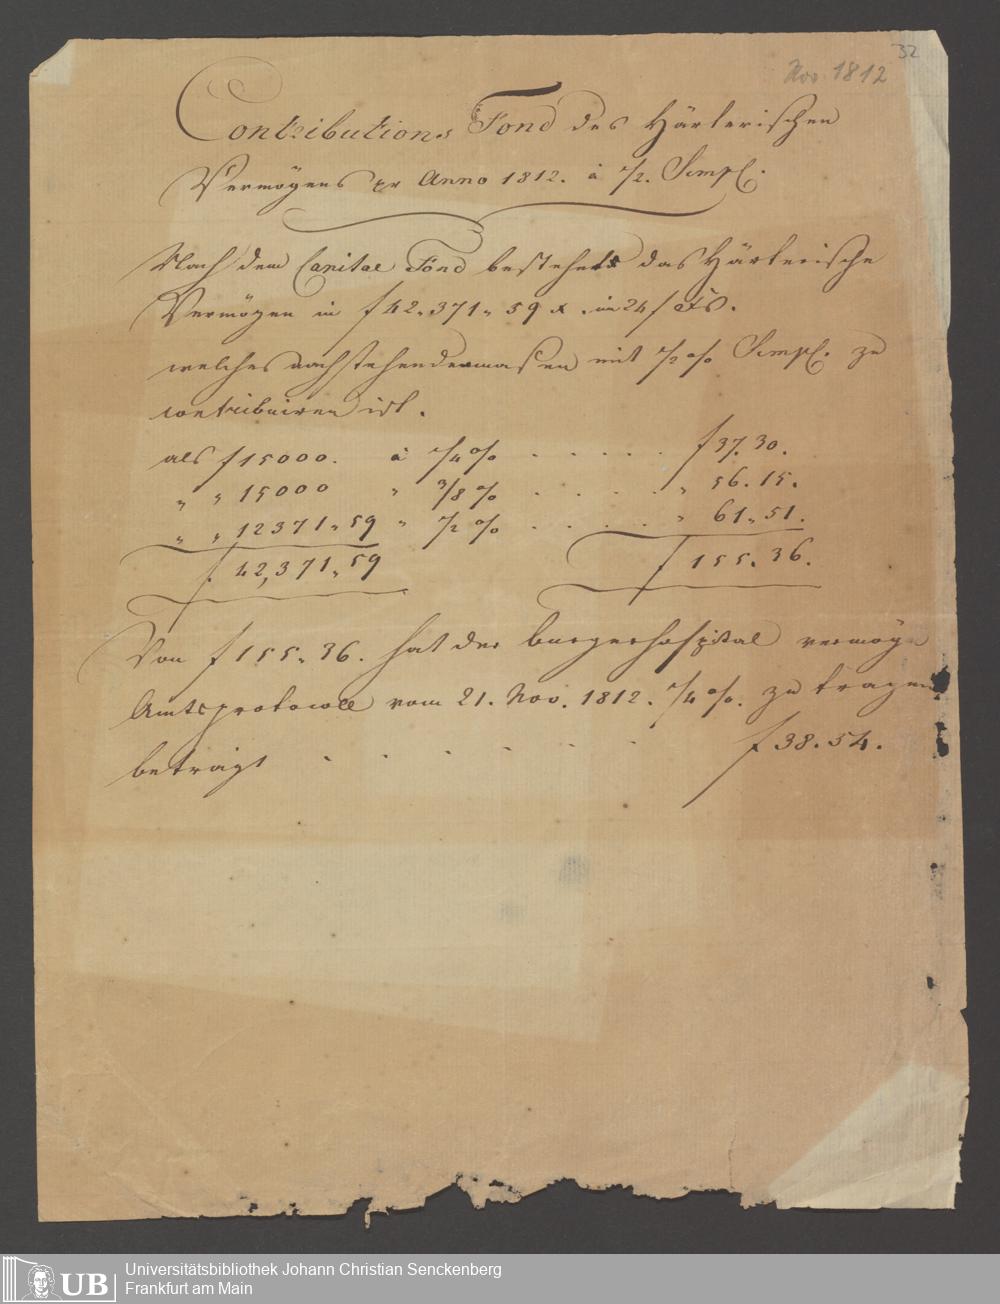 32
Nov. 1812
Contributions Fond des Härlerischen
Vermögens pr Anno 1812. à 1/2. Simpl.
Nach dem Capital Fond bestehets das Härlerische
Vermögen in f 42,371,, 59 x. in 24 f
welches nachstehendermaßen mit 1/2 % Simpl. zu
contribuiren ist.
als f 15000. à 1/4 % . . . . . f 37. 30.
" " 15000 " 3/8 % . . . . " 56. 15.
" " 12371,, 59 " 1/2 % . . . . " 61,, 51.
f 42,371,, 59 f 155. 36.
Von f 155,, 36. hat der burgerhospital vermög
Amtsprotocoll vom 21. Nov. 1812. 1/4 %. zu tragen
beträgt . . . . . . f 38. 54.
UB Universitätsbibliothek Johann Christian Senckenberg
Frankfurt am Main